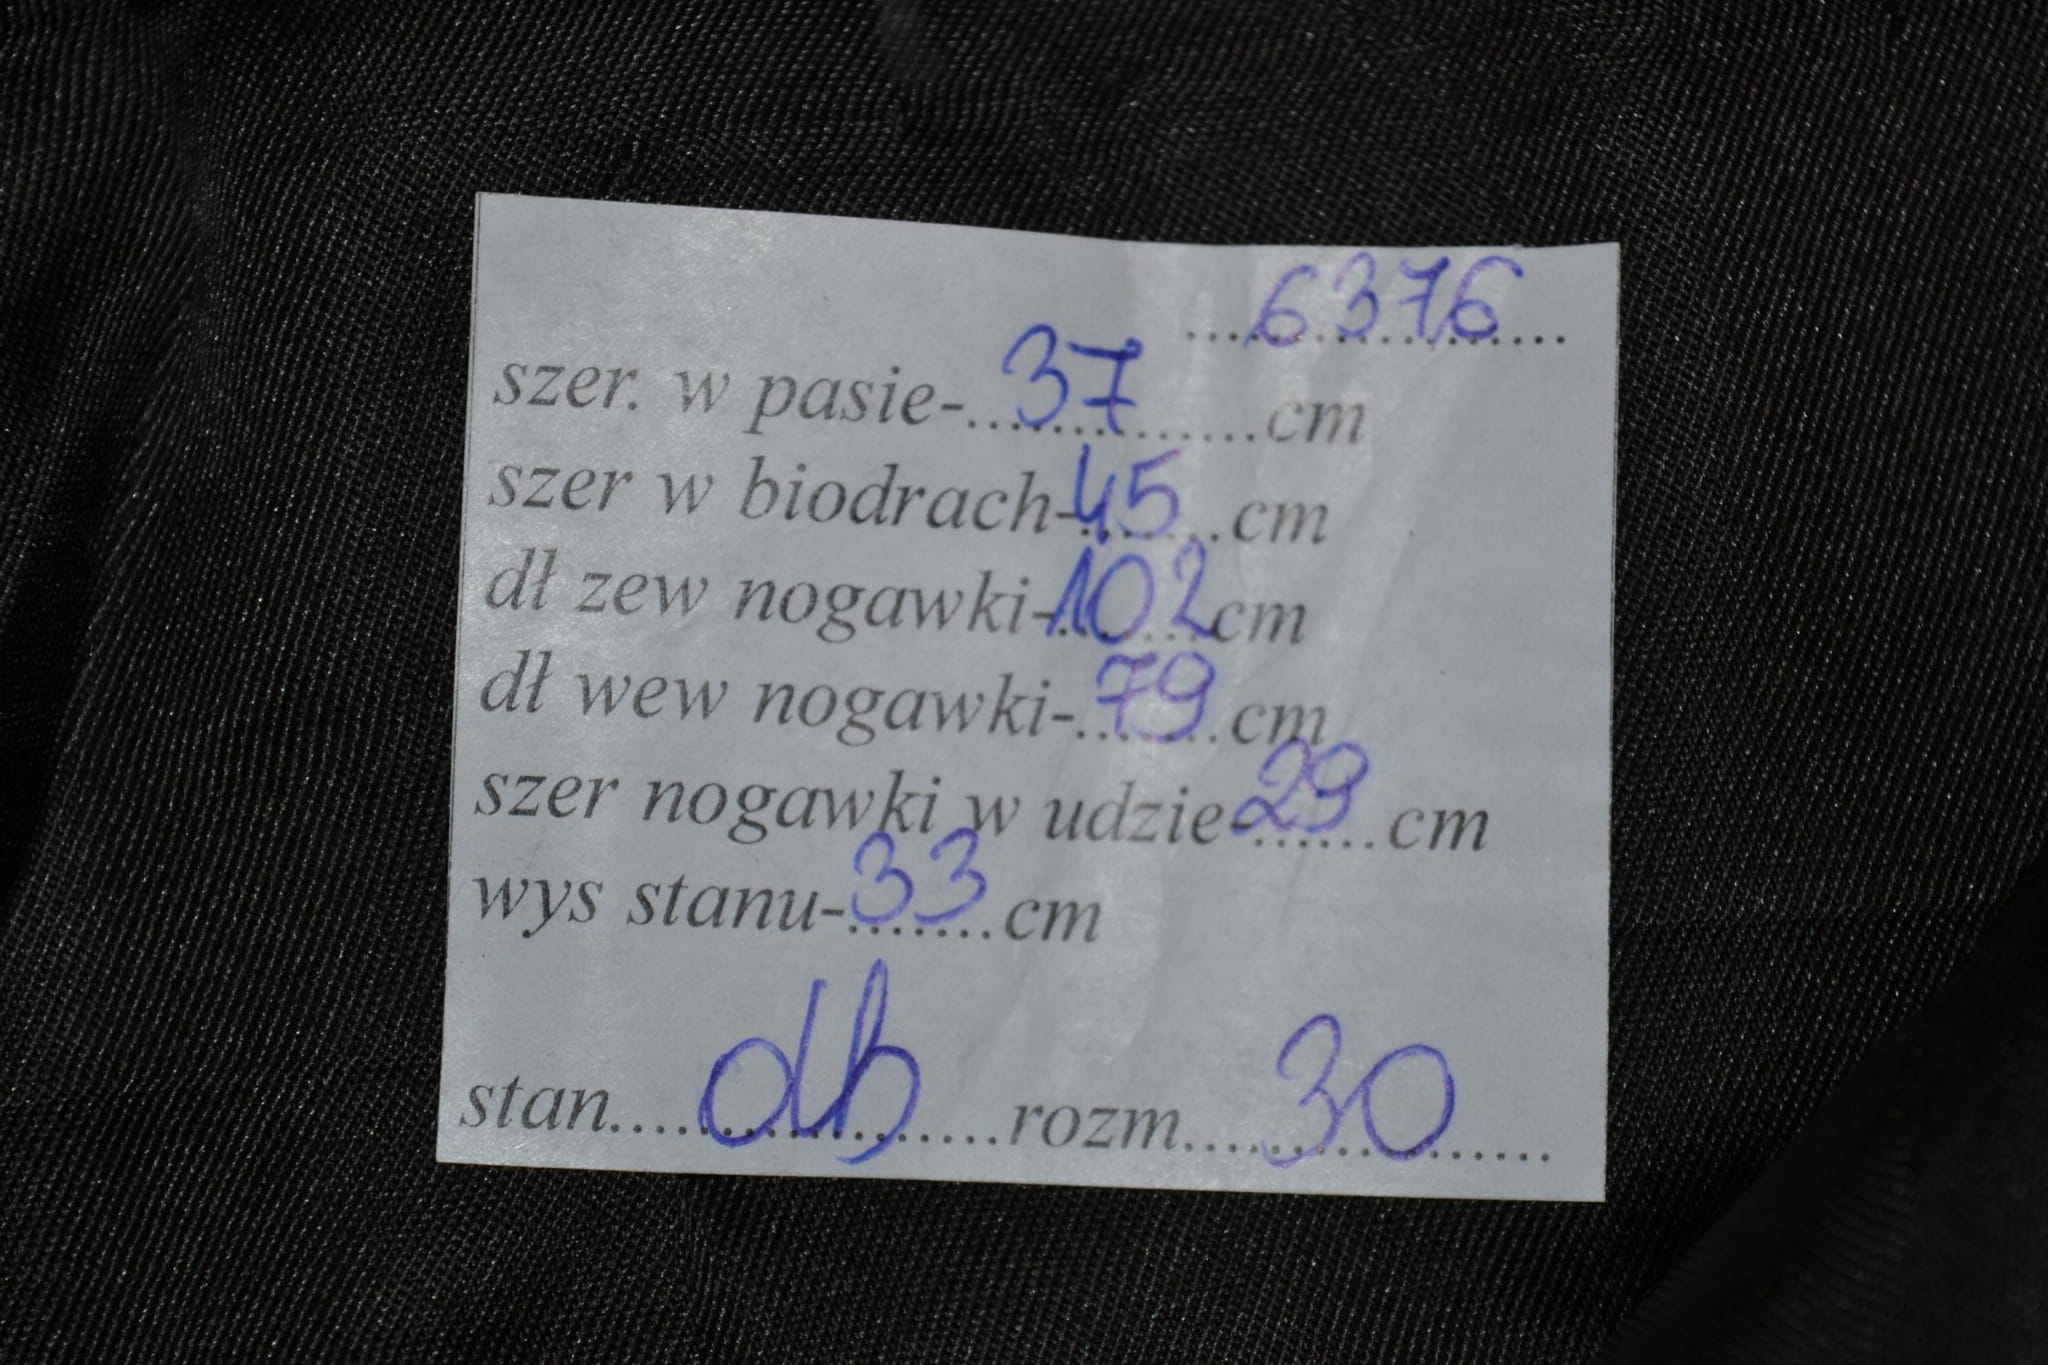 ...6376...
szer. w pasie-...37...cm
szer w biodrach-45...cm
dł zew nogawki-102cm
dł wew nogawki-...79.cm
szer nogawki w udzie-29...cm
wys stanu-33.cm
stan....db....rozm....30....